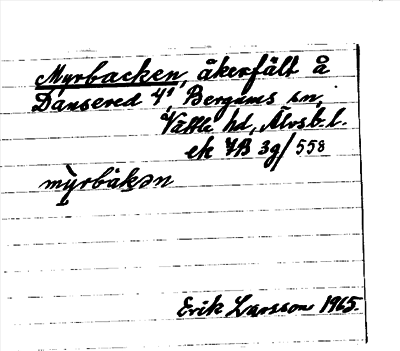 Myrbacken, åkerfält å
Dansered 4⁸, Bergums sn,
Vättle hd, Älvsb. l.
ek 7B 3g/558
mỳrbàkən
Erik Larsson 1965.